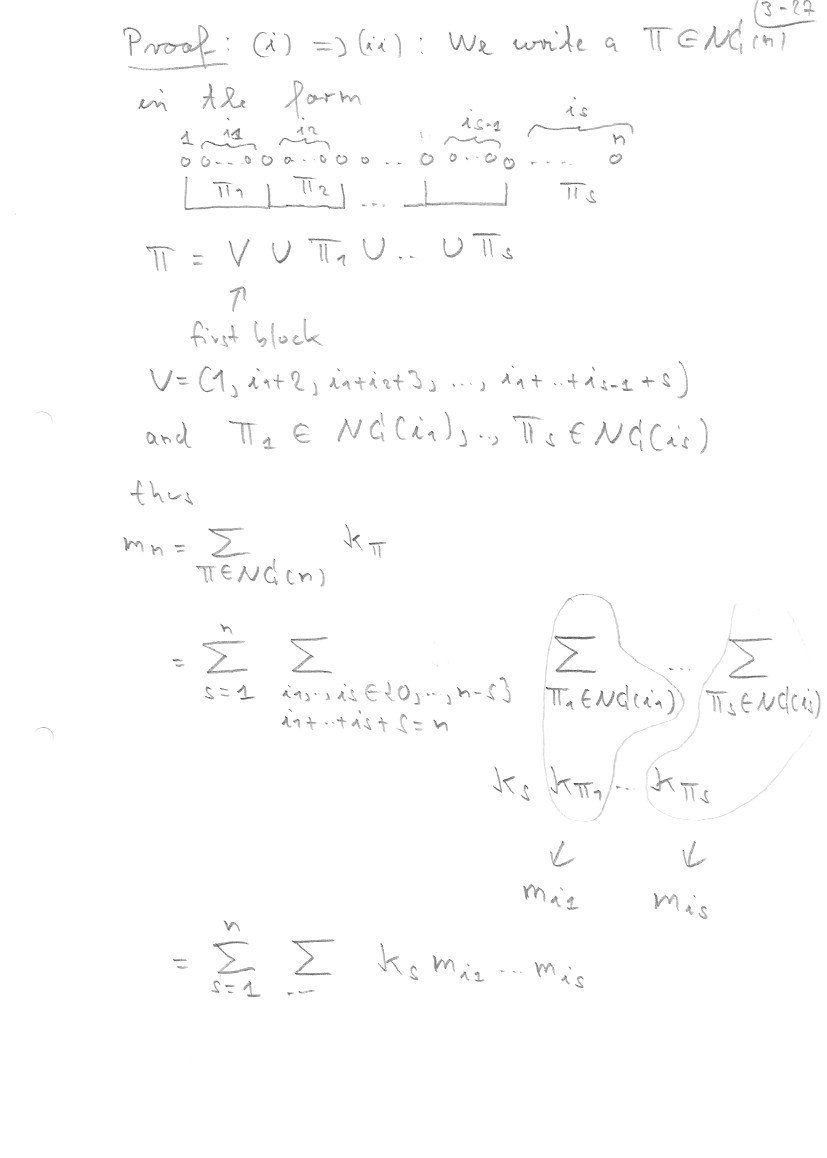 3-27
Proof: (i) => (ii): We write a π ∈ NC(n)
in the form
i1 i2 is-1 is
1 n
o o...o o o...o o o ... o o...o o .... o
π1 π2 ... πs
π = V ∪ π1 ∪ .. ∪ πs
↑
first block
V = (1, i1+2, i1+i2+3, ..., i1+..+is-1+s)
and π1 ∈ NC(i1), .., πs ∈ NC(is)
thus
mn = Σ π∈NC(n) kπ
= Σ s=1 n Σ i1,..,is ∈ {0,..,n-s} i1+..+is+s=n Σ π1∈NC(i1) ... Σ πs∈NC(is)
ks kπ1 ... kπs
↓ ↓
mi1 mis
= Σ s=1 n Σ ... ks mi1 ... mis